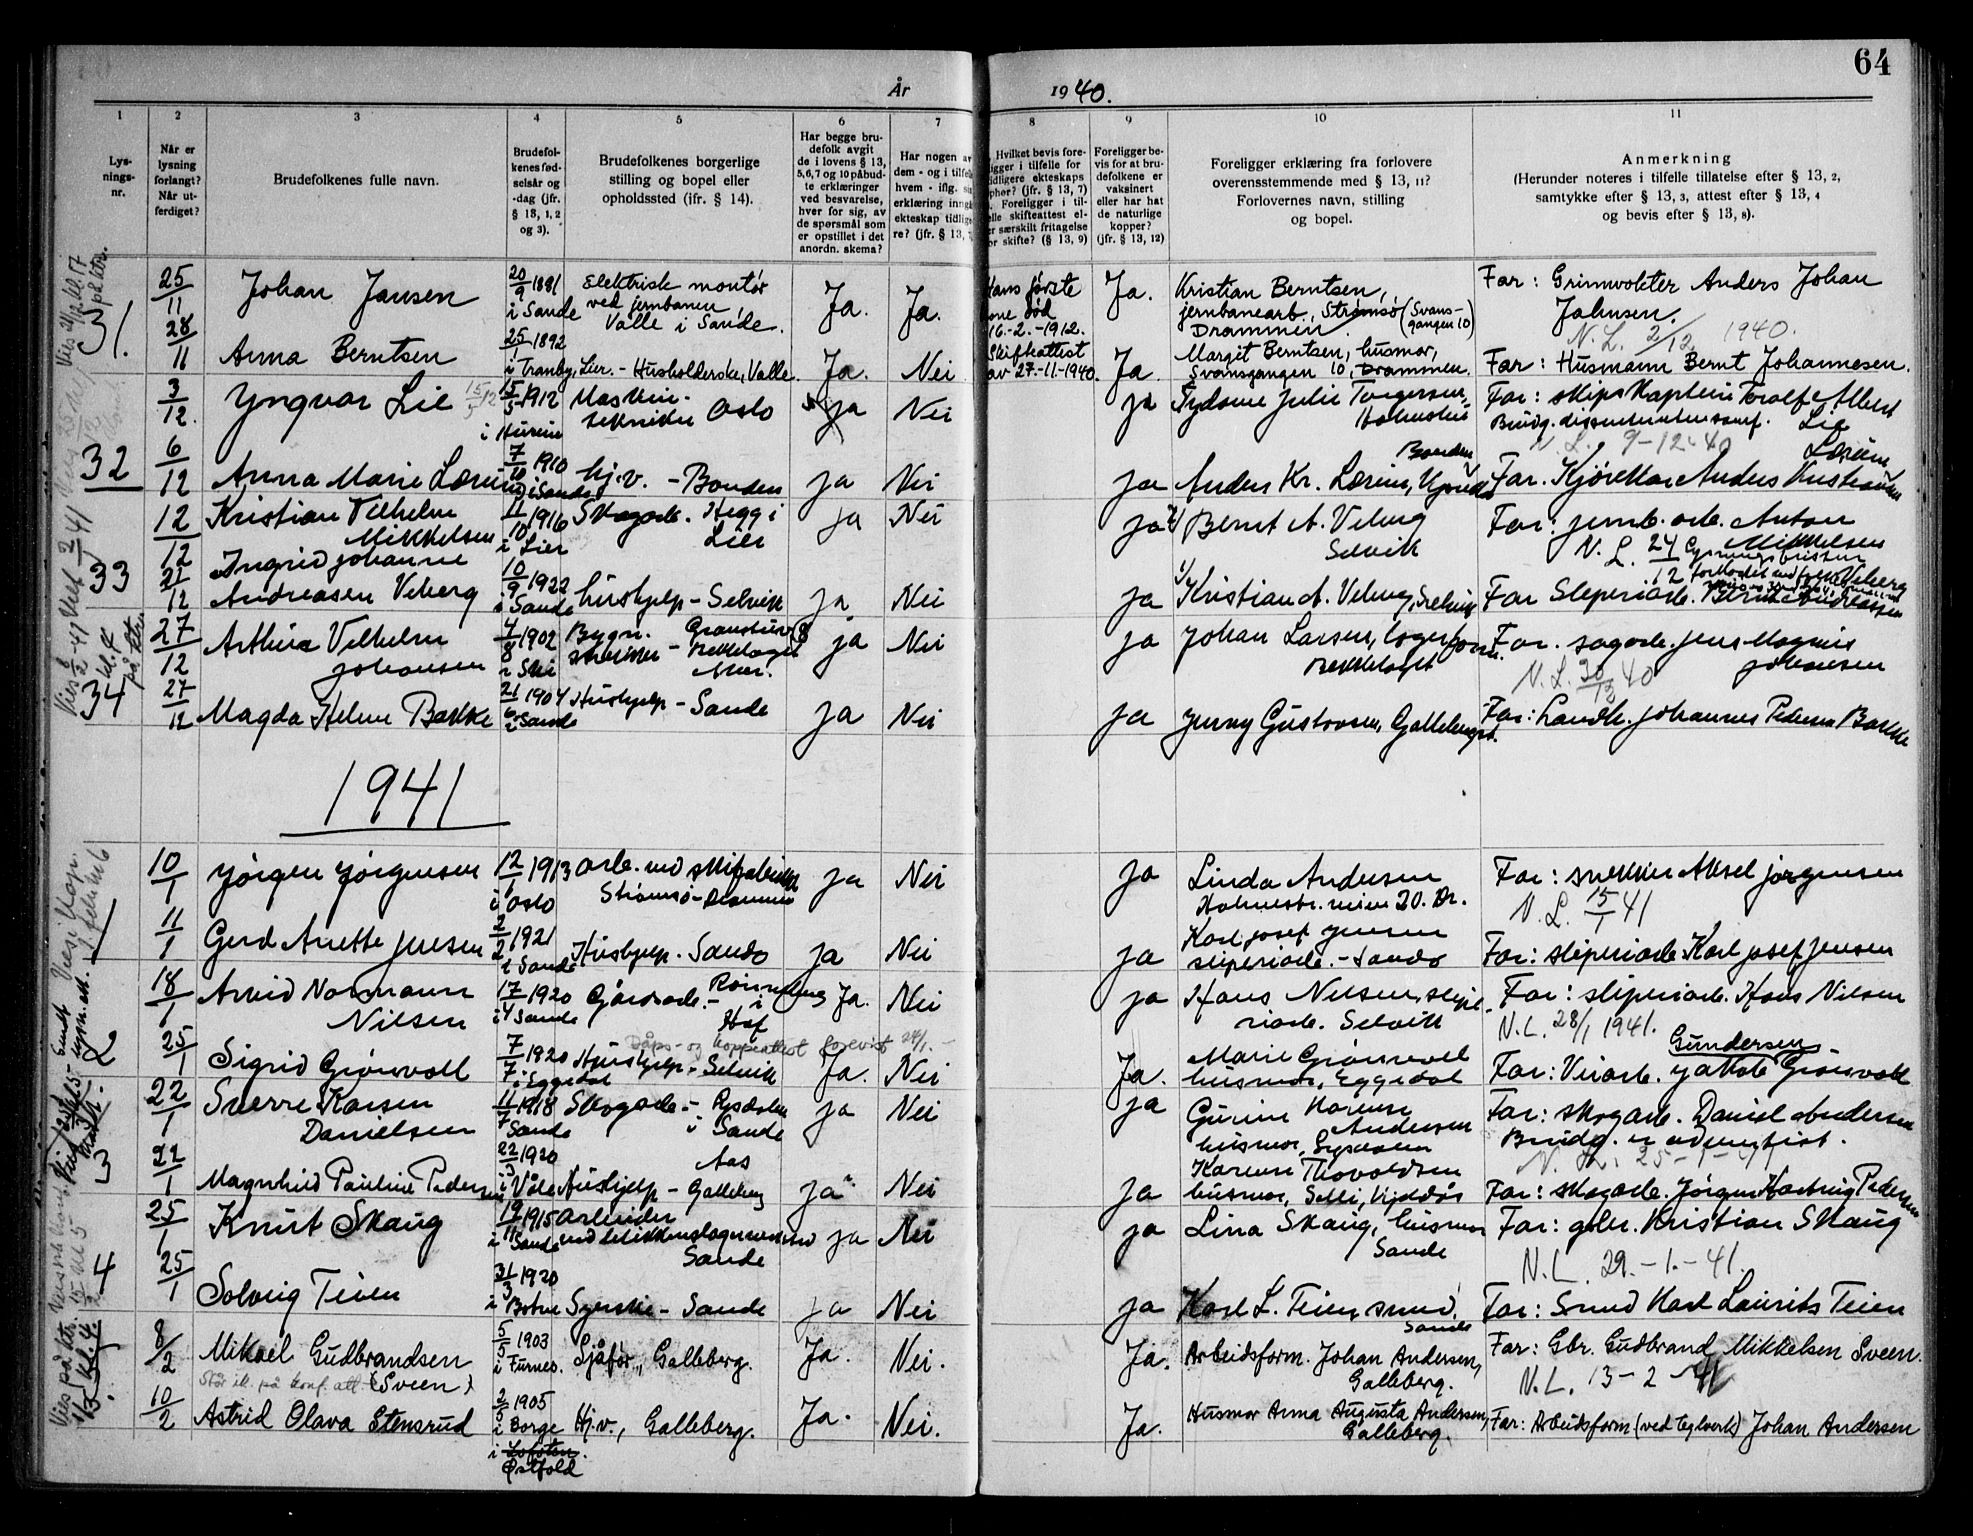 64
År
1940.
1
2
3
4
5
6
7
8
9
10
11
Lys-
nings-
nr.
Når er
lysning
forlangt?
Når ut-
ferdiget?
Brudefolkenes fulle navn.
Brudefol-
kenes fød-
selsår og
-dag (jfr.
§ 13, 1, 2
og 3).
Brudefolkenes borgerlige
stilling og bopel eller
opholdssted (ifr. § 14).
Har begge bru-
defolk avgit
de i lovens § 13,
5, 6, 7 og 10 påbud-
te erklæringer
ved besvarelse,
hver for sig, av
de spørsmål som
er opstillet i det
anordn. skema?
Har nogen av
dem - og i tilfelle
hvem - iflg. sin
erklæring inngå
ekteskap tidlige
re? (jfr. § 13,
Hvilket bevis fore-
ligger i tilfelle for
tidligere ekteskaps
ophør? (jfr. § 13, 7)
Foreligger i til-
felle skifteattest el-
er særskilt fritagelse
or skifte? (§ 13, 9)
Foreligger be-
vis for at bru-
defolkene er
vaksinert
eller har hat
de naturlige
kopper?
(jfr. § 13, 12)
Foreligger erklæring fra forlovere
overensstemmende med § 13, 11?
Forlovernes navn, stilling
og bopel.
Anmerkning
(Herunder noteres i tilfelle tillatelse efter § 13, 2,
samtykke efter § 13, 3, attest efter § 13, 4
og bevis efter § 13, 8).
31.
25/11
28/11
Johan Jansen
20/9 1881
i Sande
Elektrisk montør
ved jernbanen
Valle i Sande.
Ja.
Ja.
Hans første
kone død
16.-2.-1912.
Skifteattest
av 27.-11-1940.
Ja.
Kristian Berntsen,
jernbanearb, Strømsø (Svans-
gangen 10)
Drammen.
Far: Grinnvokter Anders Johan
Jahnsen.
N.L. 2/12 1940.
Anna Berntsen
25/1 1892
i Tranby, Lier. - Husholderske, Valle.
Ja.
Nei
Ja.
Margit Berntsen, husmor,
Svansgangen 10, Drammen.
Far: Husmann Bernt Johannesen.
32
3/12
6/12
Yngvar Lie
15/5 1912
i Hurum
Maskin-
tekniker Oslo
Ja
Nei
ja
Torgersen,
Holmsbu
Far: skipskaptein Toralf Albert
Lie
Brudg. dissentermenighet.
N.L. 9-12-40
Anna Marie Lærum
7/10 1910
i Sande
hj.v. - Bonden
ja
Nei
ja
Anders Kr. Lærum,
Bonden
Far. Kjørekar Anders Kristian
Lærum
33
12/12
21/12
Kristian Vilhelm
Mikkelsen
11/10 1916
i Lier
Skogarb. Hegg i
Lier
ja
Nei
ja
Bernt A. Veberg
Selvik
Far: jernb. arb. Anton
Mikkelsen
N.L. 24/12
Ingrid Johanne
Andreasen Veberg
10/9 1922
i Sande
hushjelp - Selvik
ja
Nei
ja
Kristian A. Veberg, Selvik
Far Sliperiarb. Bernt Andreasen
Veberg
34
27/12
27/12
Arthur Vilhelm
Johansen
4/8 1902
i Ski
Bygn.
snekker - Bekkelaget
Aker.
ja
Nei
ja
Johan Larsen, lagerform.
Bekkelaget
Far. sagarb. Jens Magnus
Johansen
N.L. 30/12 40
Magda Helene Bakke
21/6 1904
i Sande
Hushjelp - Sande
ja
Nei
ja
Jenny Gustavsen, Gallebergst.
Far: Landh. Johannes Pedersen Bakke
1941
1
10/1
11/1
Jørgen Jørgensen
12/1 1913
i Oslo
Arb. ved skifabrikk
Strømsø - Drammen
ja
Nei
ja
Linda Andersen
Holmestr. veien 20. Dr.
Far: snekker Aksel Jørgensen
N.L. 15/1 41
Gerd Anette Jensen
2/2 1921
i Sande
Hushjelp. Sande
ja
Nei
ja
Karl Josef Jensen
sliperiarb. - Sande
Far: sliperiarb. Karl Josef Jensen
2
18/1
25/1
Arvid Normann
Nilsen
17/4 1920
i Sande
Gårdsarb. -
i
Hof
Ja.
Nei
ja
Hans Nilsen, slipe-
riarb. Selvik
Far: sliperiarb. Hans Nilsen
N.L. 28/1 1941.
Dåps- og koppeattest forevist 24/1.-
Sigrid Grønvoll
7/7 1920
i Eggedal
Hushjelp - Selvik
Ja.
Nei
Ja.
Marie Grønvoll
husmor, Eggedal
Gundersen
Far: Veiarb. Jakob Grønvoll
3
22/1
22/1
Sverre Karsen
Danielsen
11/7 1918
Sande
Skogarb. -
i Sande
ja
Nei
ja
Gurine Karense
Andersen
husmor,
Far: skogarb. Daniel Andersen
Brudg. er adventist.
N.L. 25-1-41
Magnhild Pauline Pedersen
22/3 1920
i Våle
Aas
Hushjelp - Galleberg
ja
Nei
ja
Karense Thovaldsen
husmor, Selli,
Far: skogarb. Jørgen Hartvig Pedersen
4
25/1
25/1
Knut Skaug
19/11 1915
i Sande
Arbeider
Sande
ja
Nei
ja
Lina Skaug, husmor
Sande
Far: gbr. Kristian Skaug
N.L. 29.-1.-41.
Solveig Teien
31/3 1920
i Botne
Syerske - Sande
ja
Nei
ja
Karl L. Teien, smed,
Sande
Far: Smed Karl Laurits Teien
8/2
10/2
Mikael Gudbrandsen
Står ik. på konf. att. (Sveen)
5/5 1903
i Furnes.
Sjåfør, Galleberg.
Ja.
Nei.
Ja.
Arbeidsform. Johan Andersen,
Galleberg.
Far: Gbr. Gudbrand Mikkelsen Sveen.
N.L. 13-2-41
Astrid Olava Stensrud
2/5 1905
i Borge
i Lofoten.
Østfold
Hj.v., Galleberg.
Ja.
Nei.
Ja.
Husmor Anna Augusta Andersen,
Galleberg.
Far: Arbeidsform (ved teglverk) Johan Andersen